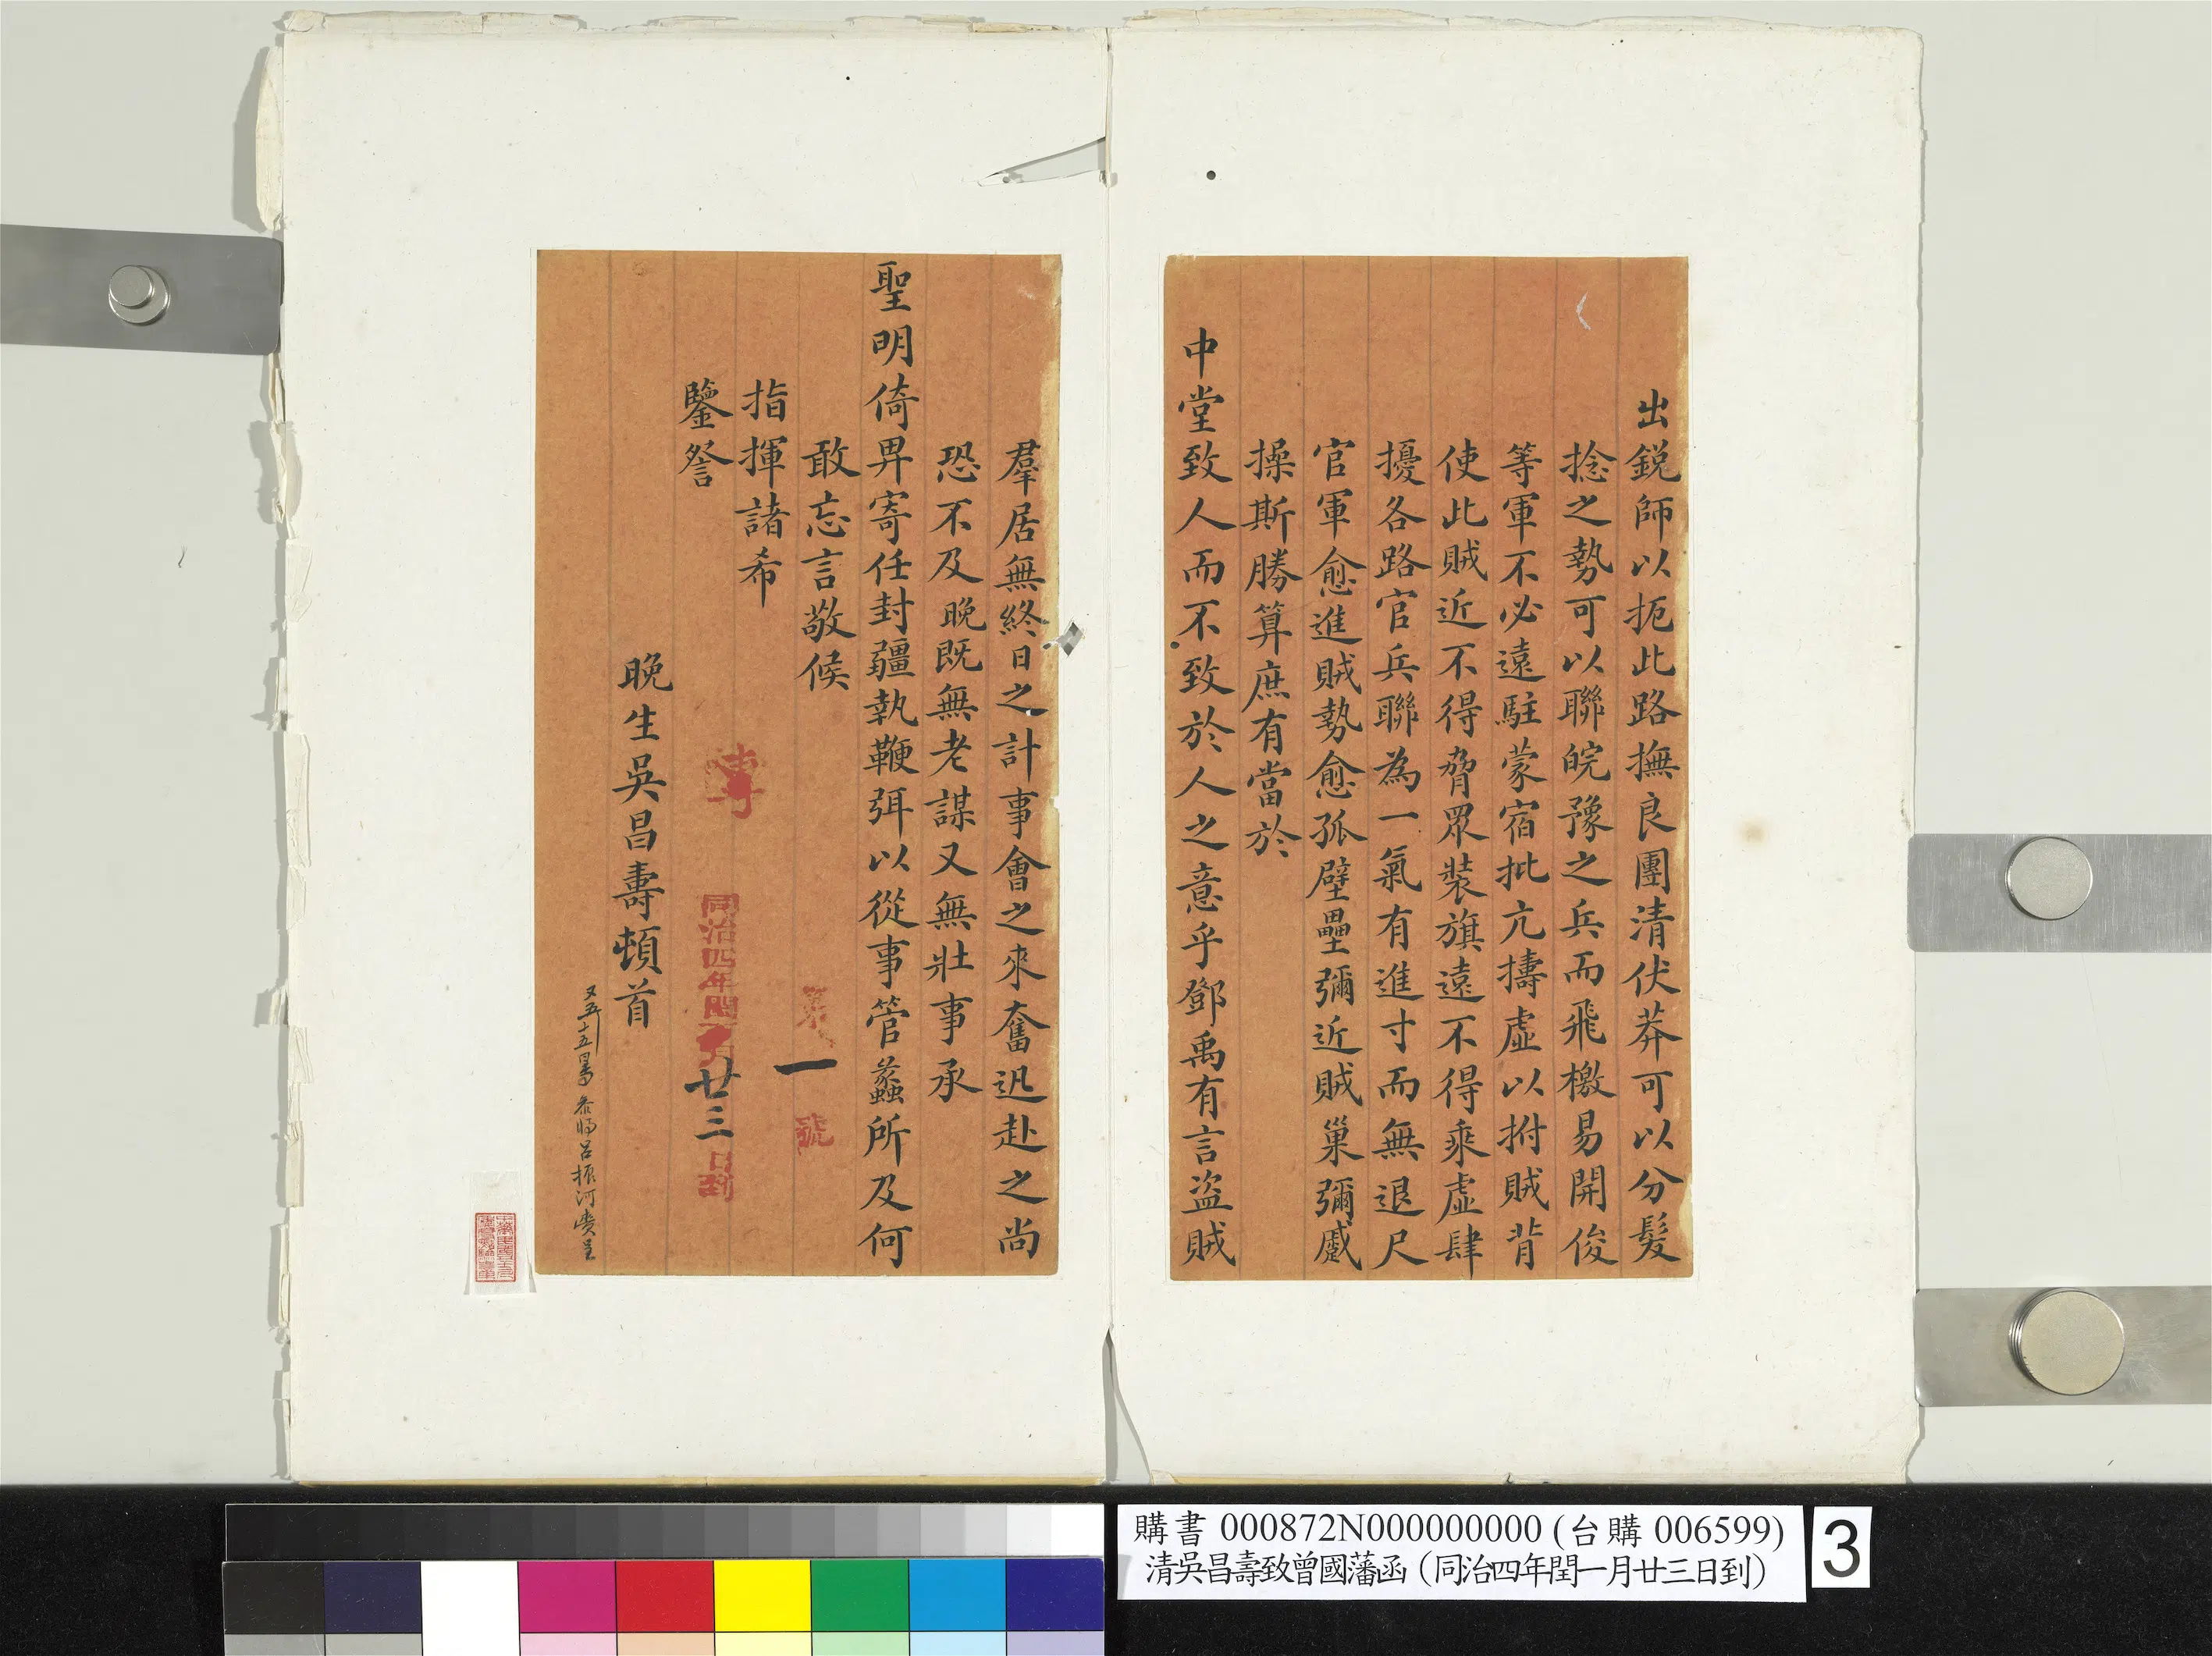 出銳師以扼此路撫良團清伏莽可以分髮
捻之勢可以聯皖豫之兵而飛檄易開俊
等軍不必遠駐蒙宿批亢擣虛以拊賊背
使此賊近不得脅眾裝旗遠不得乘虛肆
擾各路官兵聯為一氣有進寸而無退尺
官軍愈進賊勢愈孤壁壘彌近賊巢彌蹙
操斯勝算庶有當於
中堂致人而不致於人之意乎鄧禹有言盜賊
羣居無終日之計事會之來奮迅赴之尚
恐不及晚既無老謀又無壯事承
聖明倚畀寄任封疆執鞭弭以從事管蠡所及何
敢忘言敬候
指揮諸希
鑒詧
晚生吳昌壽頓首
專
第一號
同治四年閏月廿三日到
又五十五
呂振河賫呈
購書 000872N000000000 (台購 006599)
清吳昌壽致曾國藩函 (同治四年閏一月廿三日到)
3